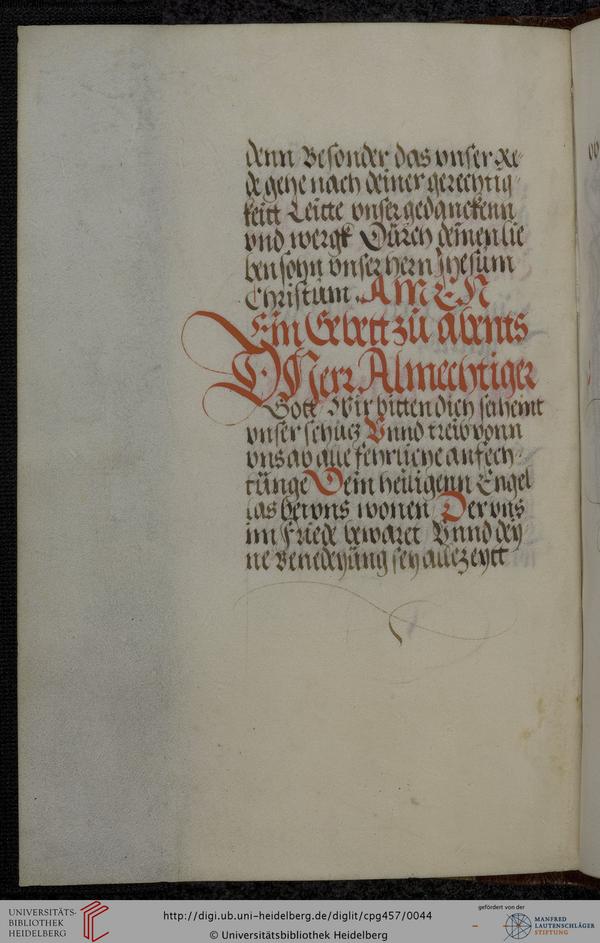 denn Besonder das vnser Re-
de gehe nach deiner gerechtig-
keitt Leitte vnser gedanckenn
vnd wergk Dürch deinen lie
ben sohn vnsern hern Jhesum
Christum. AMEN
Ein Gebett zü Abents
O Herr Almechtiger
Gott Wir bitten dich
vnser schücz Vnnd treib vonn
vns ab alle fehrliche anfech-
tünge Dein heiligenn Engel
las bei vns wonen Der vns
im Friede bewaret Vnnd dey-
ne Benedeyüng sey allezeytt
UNIVERSITÄTS-
BIBLIOTHEK
HEIDELBERG
http://digi.ub.uni-heidelberg.de/diglit/cpg457/0044
© Universitätsbibliothek Heidelberg
gefördert von der
MANFRED
LAUTENSCHLÄGER
STIFTUNG